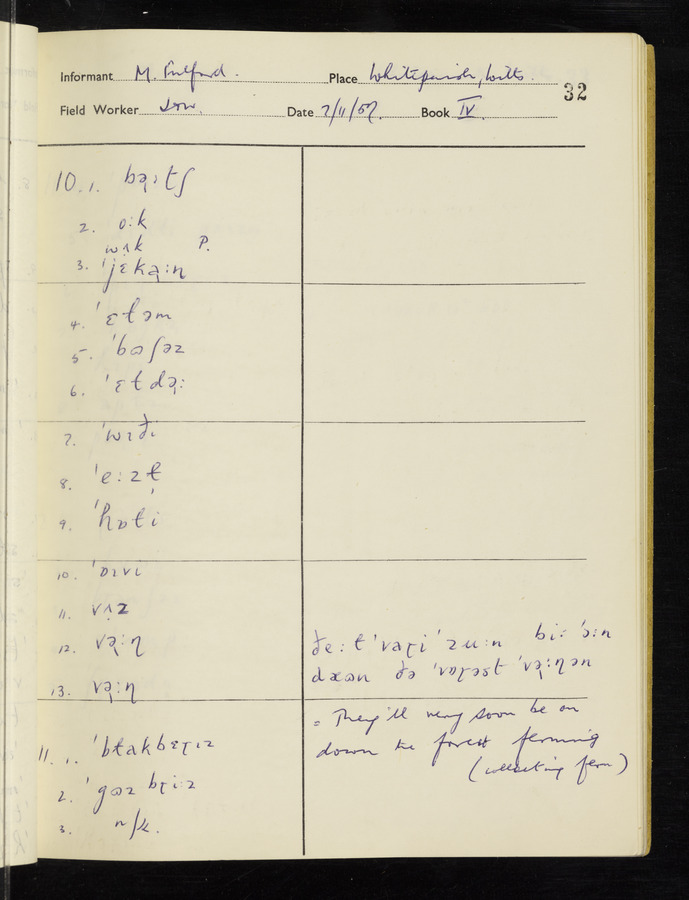 Informant M. Fulford. Place Whiteparish, Wilts.
32
Field Worker Date 7/11/57. Book IV.
10. 1. bəɻ:tʃ
2. o:k
wʌk P.
3. 'jɛkəɻ:n
4. 'ɛɫəm
5. 'bʊʃəz
6. 'ɛɫdəɻ:
7. 'wɪði
8. 'e:zɫ
9. 'hɒɫi
10. 'ɒɪvi
11. vʌz
12. vəɻ:ɳ
13. vəɻ:ɳ
ðe:ɫ 'vaɽi 'zu:n bi: 'ɔ:n
dæʊn ðə 'vɒɻəst 'vəɻ:ɳən
= They'll very soon be on
down the forest ferning
(collecting fern)
11. 1. 'bɫakbɛɽɪz
2. 'gʊzbɽi:z
3. n/k.